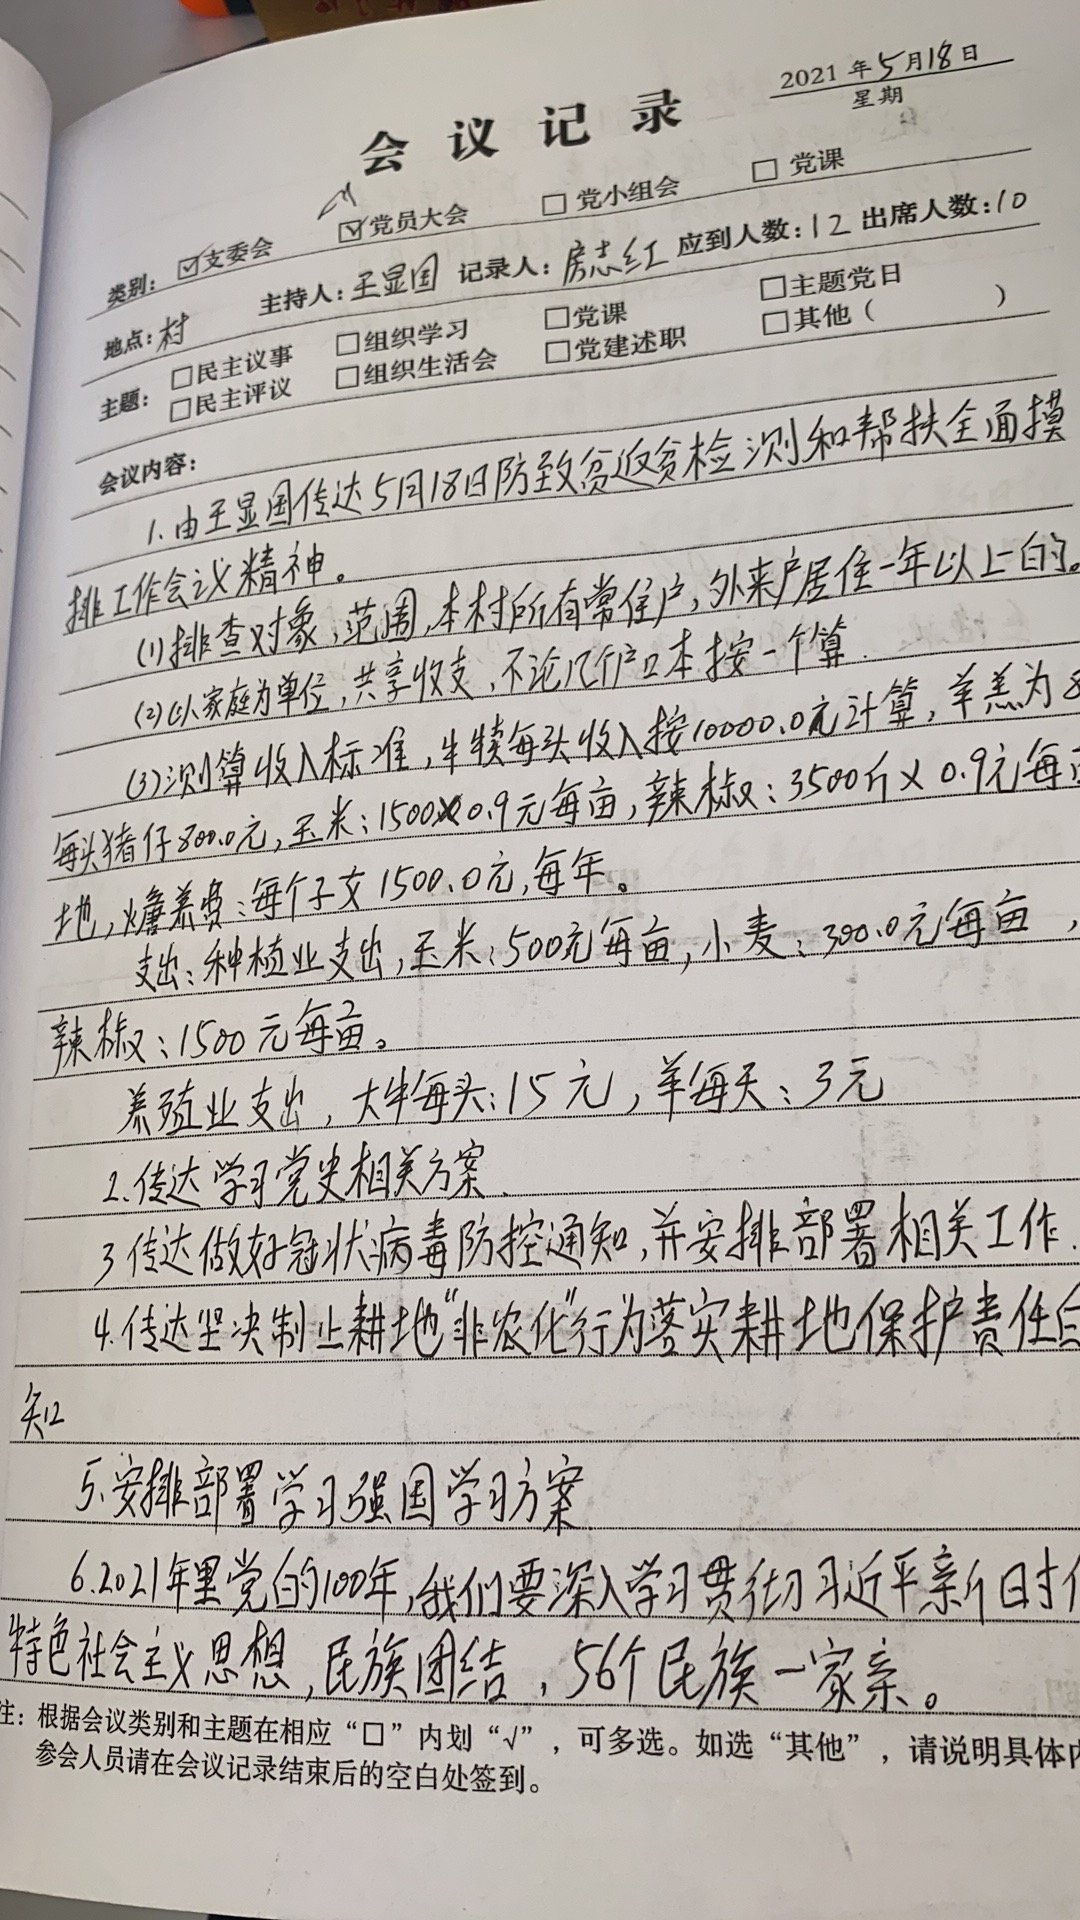 2021 年 5 月 18 日
星期
会议记录
类别：☑支委会 ☑党员大会 □党小组会 □党课
地点：村 主持人：王显国 记录人：房志红 应到人数：12 出席人数：10
主题：□民主议事 □组织学习 □党课 □主题党日
□民主评议 □组织生活会 □党建述职 □其他（ ）
会议内容：
1.由王显国传达5月18日防致贫返贫检测和帮扶全面摸
排工作会议精神。
(1)排查对象,范围,本村所有常住户,外来户居住一年以上的。
(2)以家庭为单位,共享收支,不论几个户口本按一个算.
(3)测算收入标准,牛犊每头收入按10000.0元计算,羊羔为8
每头猪仔800.0元,玉米:1500X0.9元每亩,辣椒:3500斤X0.9元每亩
地,赡养费:每个子女1500.0元,每年。
支出:种植业支出,玉米:500元每亩,小麦:300.0元每亩,
辣椒:1500元每亩。
养殖业支出,大牛每头:15元,羊每天:3元
2.传达学习党史相关方案.
3传达做好冠状病毒防控通知,并安排部署相关工作.
4.传达坚决制止耕地“非农化”行为落实耕地保护责任
知
5.安排部署学习强国学习方案
6.2021年里党的100年,我们要深入学习贯彻习近平新时代
特色社会主义思想,民族团结,56个民族一家亲。
注：根据会议类别和主题在相应“□”内划“√”，可多选。如选“其他”，请说明具体内
参会人员请在会议记录结束后的空白处签到。